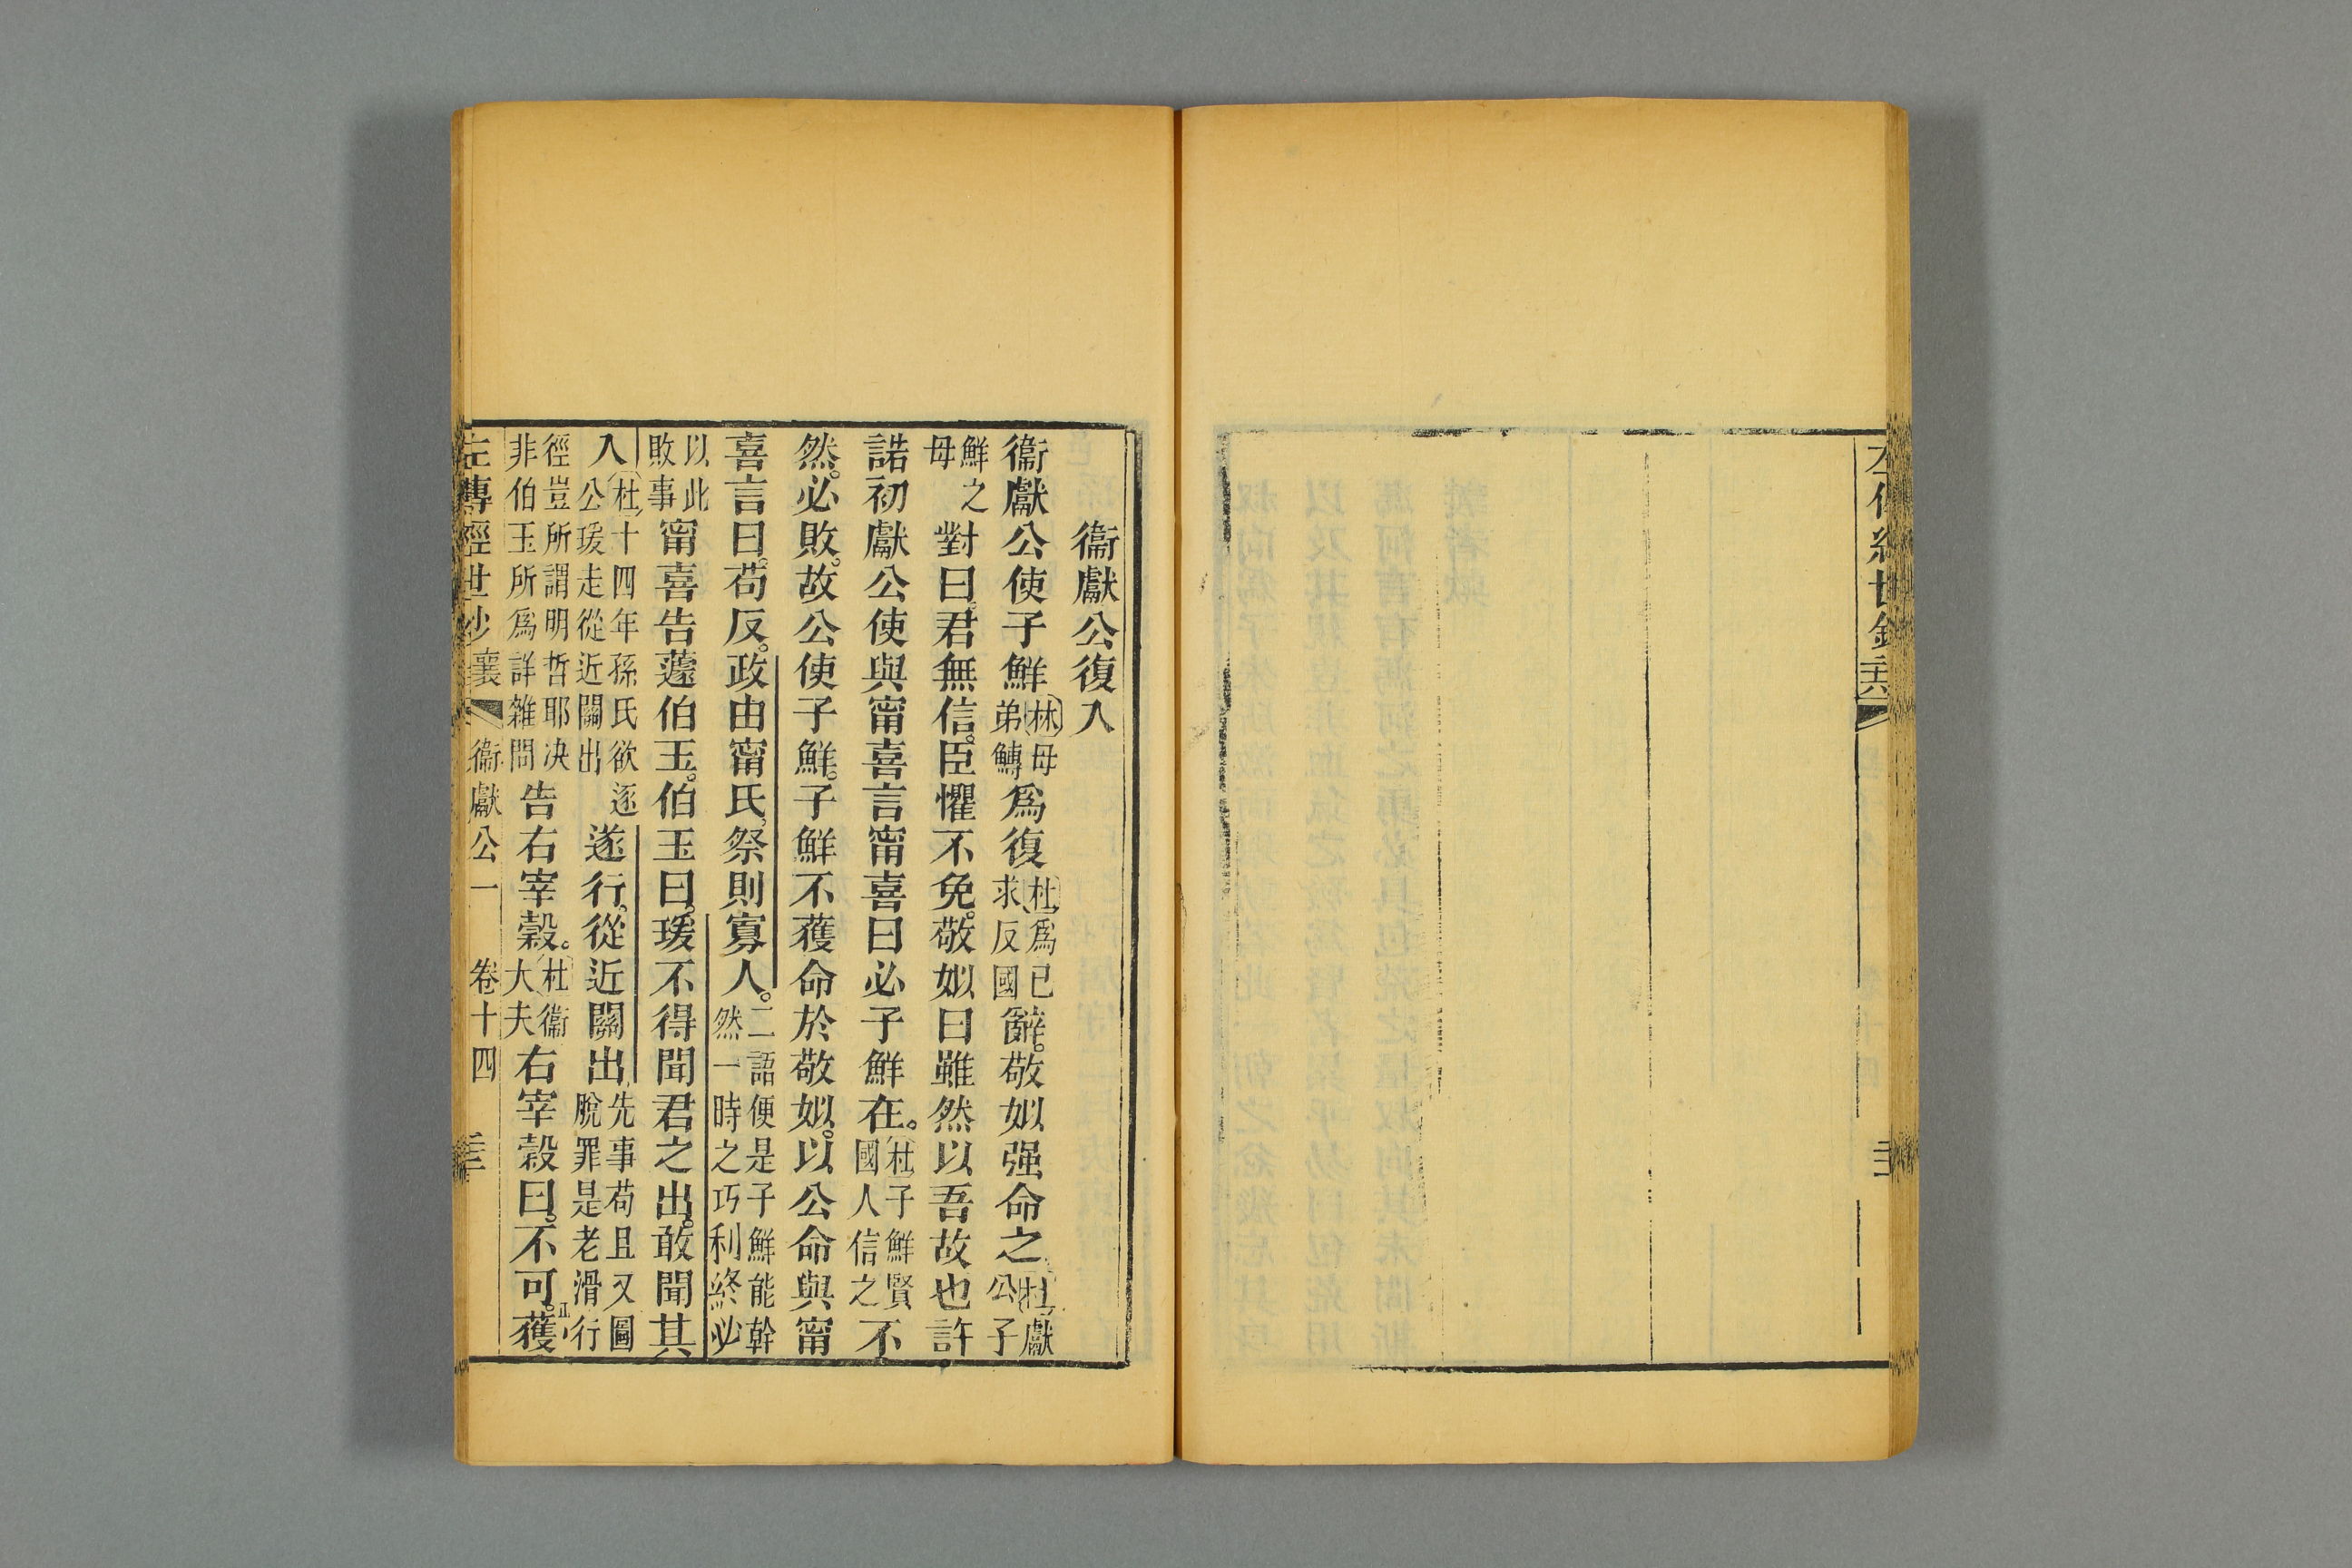 衞獻公復入
衞獻公使子鮮林母弟鱄爲復杜爲已求反國辭。敬姒强命之杜獻公子
鮮之母對曰。君無信。臣懼不免。敬姒曰雖然以吾故也許
諾初獻公使與甯喜言甯喜曰必子鮮在。杜子鮮賢國人信之不
然。必敗。故公使子鮮。子鮮不獲命於敬姒。以公命與甯
喜言曰。苟反。政由甯氏。祭則寡人。二語便是子鮮能幹然一時之巧利終必
以此敗事甯喜告蘧伯玉。伯玉曰。瑗不得聞君之出。敢聞其
入杜十四年孫氏欲逐公瑗走從近關出遂行。從近關出先事苟且又圖脫罪是老滑行
徑豈所謂明哲耶决非伯玉所爲詳雜問告右宰穀。杜衞大夫右宰穀曰。不可。獲
左傳經世鈔襄 衞獻公一 卷十四